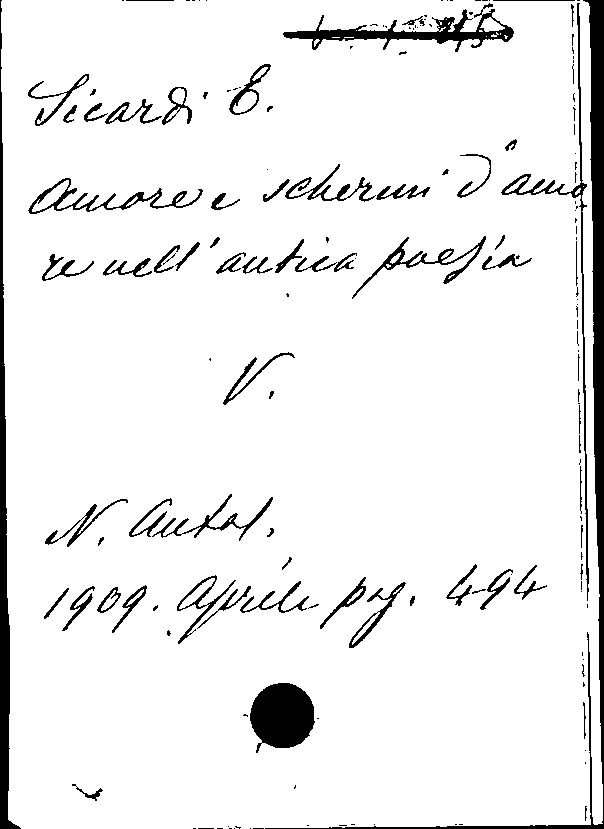 Sicardi E.
Amore e schermi d'amo
re nell'antica poesia
V.
N. Antol.
1909. Aprile pag. 494